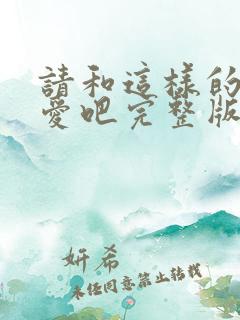 請和這樣的
愛吧完整版
妍希
未经同意禁止转载